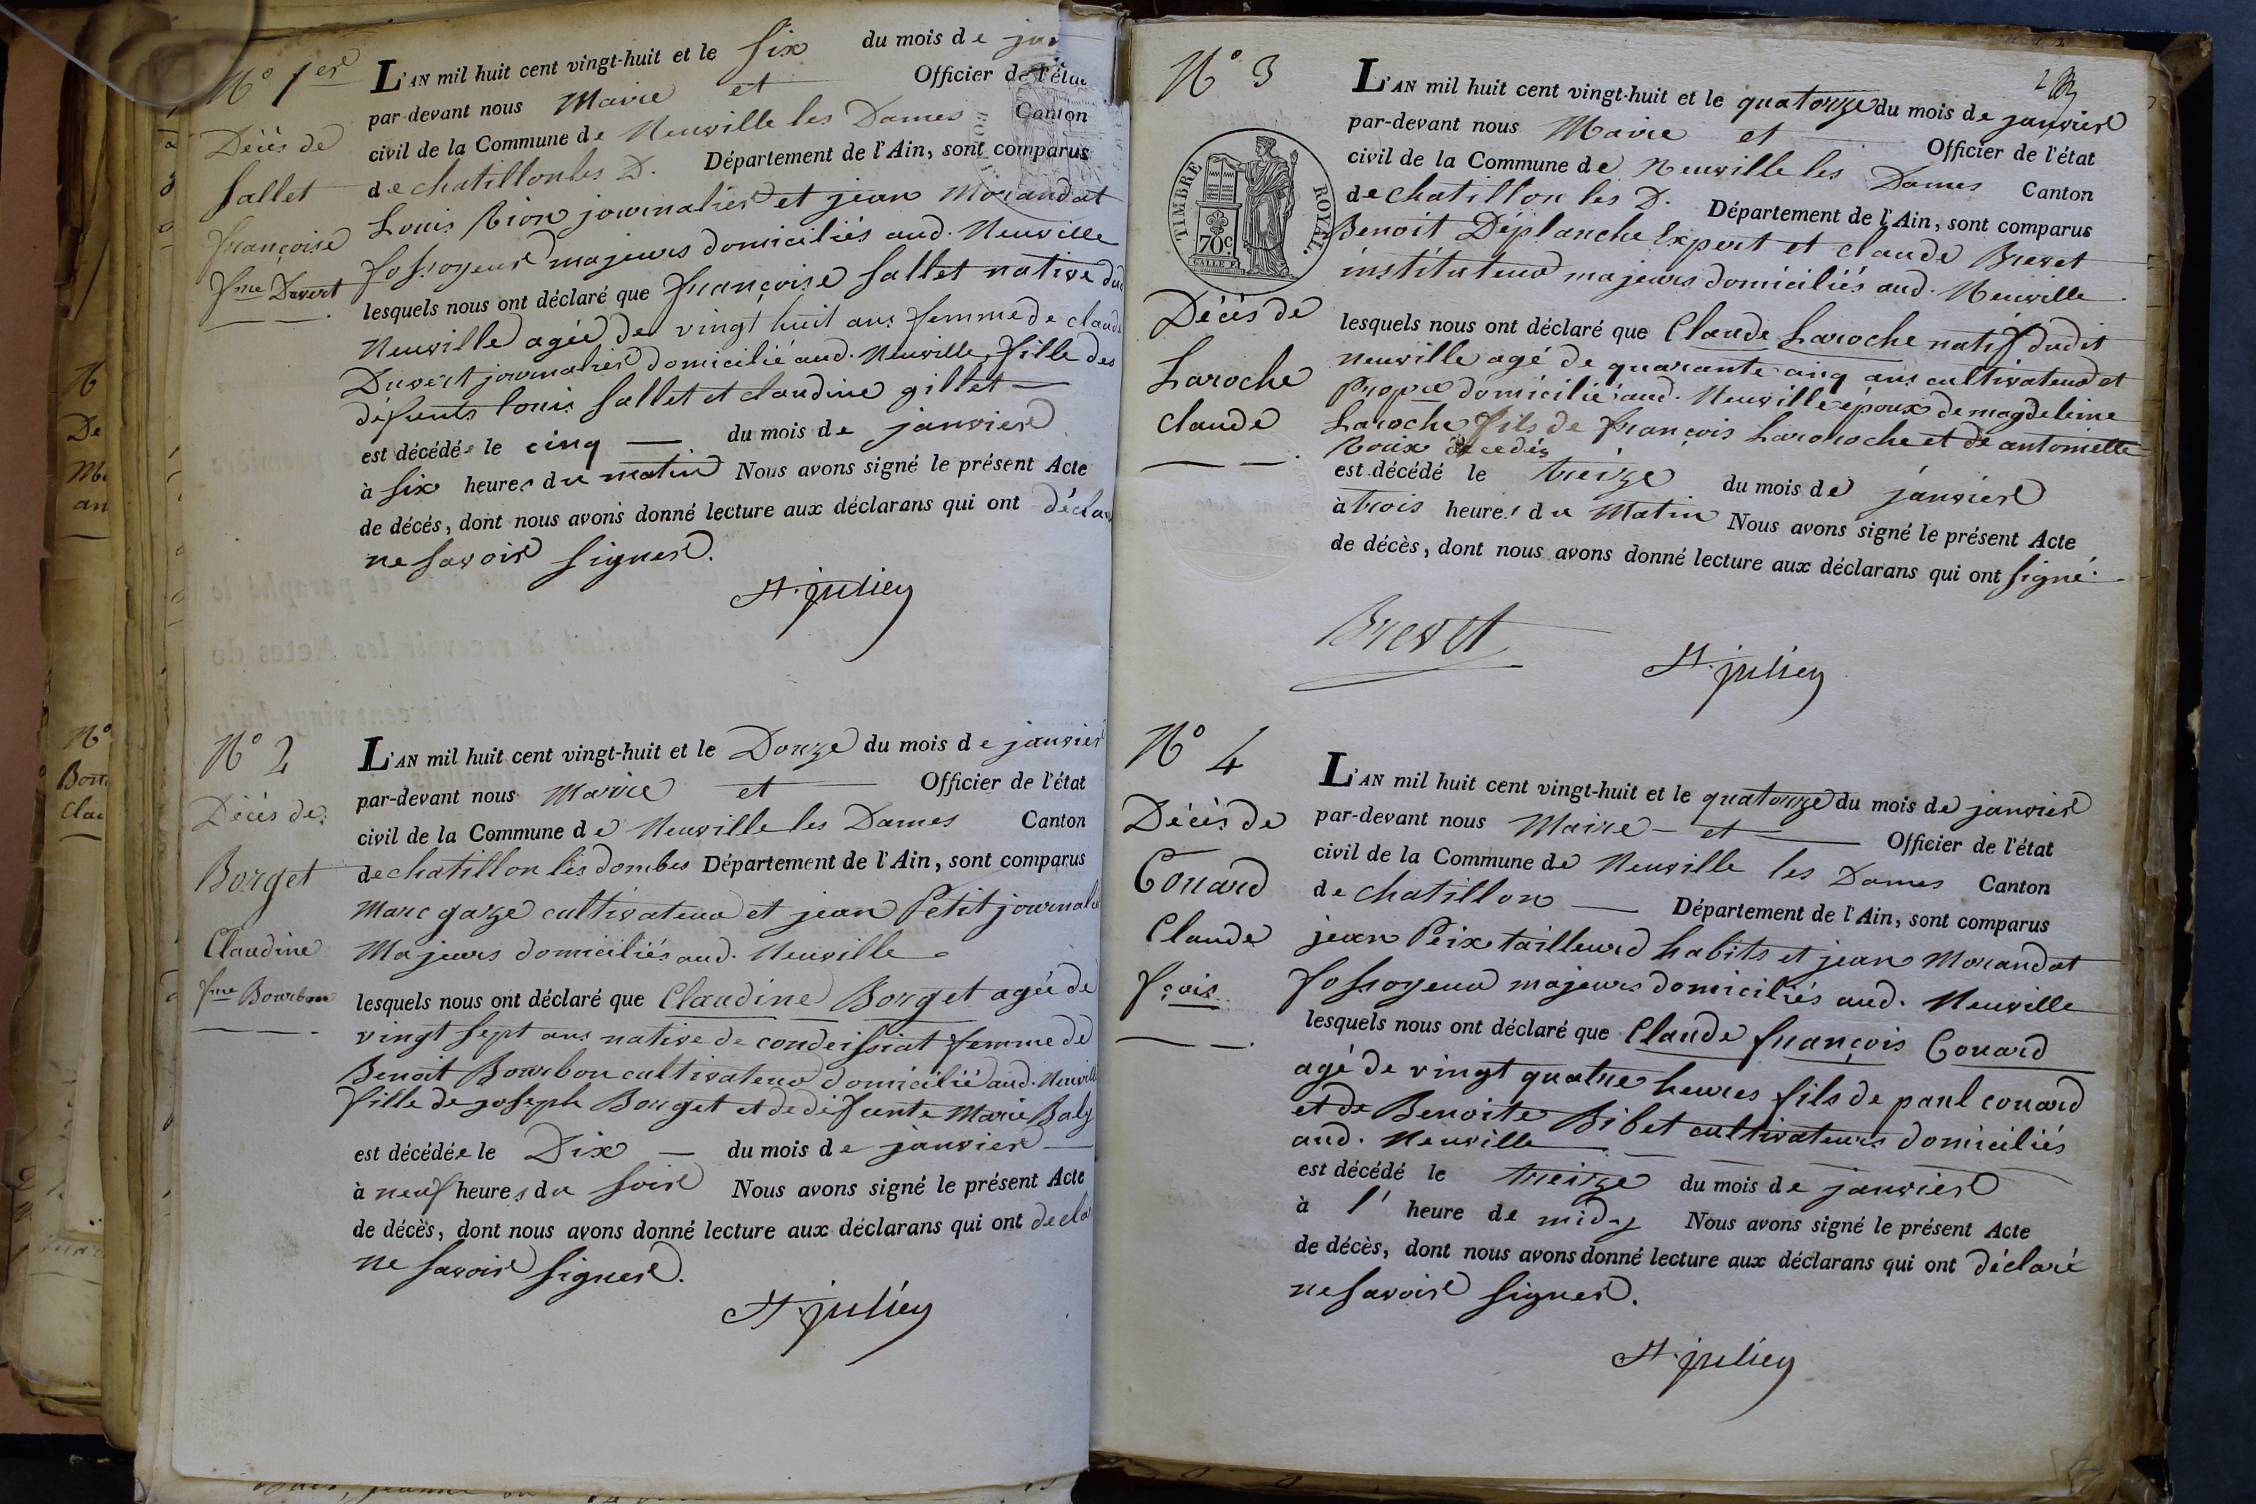 N° 1er
Décès de
Sallet
françoise
fme Duvert
L'AN mil huit cent vingt-huit et le six du mois de
par-devant nous Maire et Officier de l'état
civil de la Commune de Neuville les Dames Canton
de chatillon les D. Département de l'Ain, sont comparus
Louis Rion journalier et jean Morandat
fossoyeur majeurs domiciliés aud. Neuville
lesquels nous ont déclaré que françoise Sallet native dud
Neuville agée de vingt huit ans femme de claude
Duvert journalier domicilié aud. Neuville, fille des
défunts louis Sallet et claudine gillet
est décédée le cinq du mois de janvier
à six heures du matin Nous avons signé le présent Acte
de décés, dont nous avons donné lecture aux déclarans qui ont déclar
ne savoir signer.
St. julien
N° 2
Décès de
Borget
Claudine
fme Bourbon
L'AN mil huit cent vingt-huit et le Douze du mois de janvier
par-devant nous Maire et Officier de l'état
civil de la Commune de Neuville les Dames Canton
de chatillon les dombes Département de l'Ain, sont comparus
Marc gaze cultivateur et jean Petit journalie
Majeurs domiciliés aud. Neuville
lesquels nous ont déclaré que Claudine Borget agée de
vingt sept ans native de condeissiat femme de
Benoit Bourbon cultivateur domicilié aud. Neuville
fille de joseph Borget et de défunte Marie Baly
est décédée le Dix du mois de janvier
à neuf heures du soir Nous avons signé le présent Acte
de décès, dont nous avons donné lecture aux déclarans qui ont decla
ne savoir signer.
St. julien
N° 3
TIMBRE ROYAL
70c
Décès de
Laroche
claude
L'AN mil huit cent vingt-huit et le quatorze du mois de janvier
par-devant nous Maire et Officier de l'état
civil de la Commune de Neuville les Dames Canton
de chatillon les D. Département de l'Ain, sont comparus
Benoit Déplanche Expert et claude Brevet
instituteur majeurs domiciliés aud. Neuville.
lesquels nous ont déclaré que Claude Laroche natif dudit
neuville agé de quarante cinq ans cultivateur et
Propre domicilié aud. Neuville époux de magdeleine
Laroche fils de françois Larohoche et de antoinette
Roux décedés
est décédé le treize du mois de janvier
à trois heures du Matin Nous avons signé le présent Acte
de décès, dont nous avons donné lecture aux déclarans qui ont signé.
Brevet
St. julien
N° 4
Décès de
Couard
Claude
fçois
L'AN mil huit cent vingt-huit et le quatorze du mois de janvier
par-devant nous Maire et Officier de l'état
civil de la Commune de Neuville les Dames Canton
de chatillon Département de l'Ain, sont comparus
jean Peix tailleur d habits et jean Morandat
fossoyeur majeurs domiciliés aud. Neuville
lesquels nous ont déclaré que Claude françois Couard
agé de vingt quatre heures fils de paul couard
et de Benoite Bibet cultivateurs domiciliés
aud. Neuville
est décédé le treize du mois de janvier
à l' heure de midy Nous avons signé le présent Acte
de décès, dont nous avons donné lecture aux déclarans qui ont déclaré
ne savoir signer.
St. julien